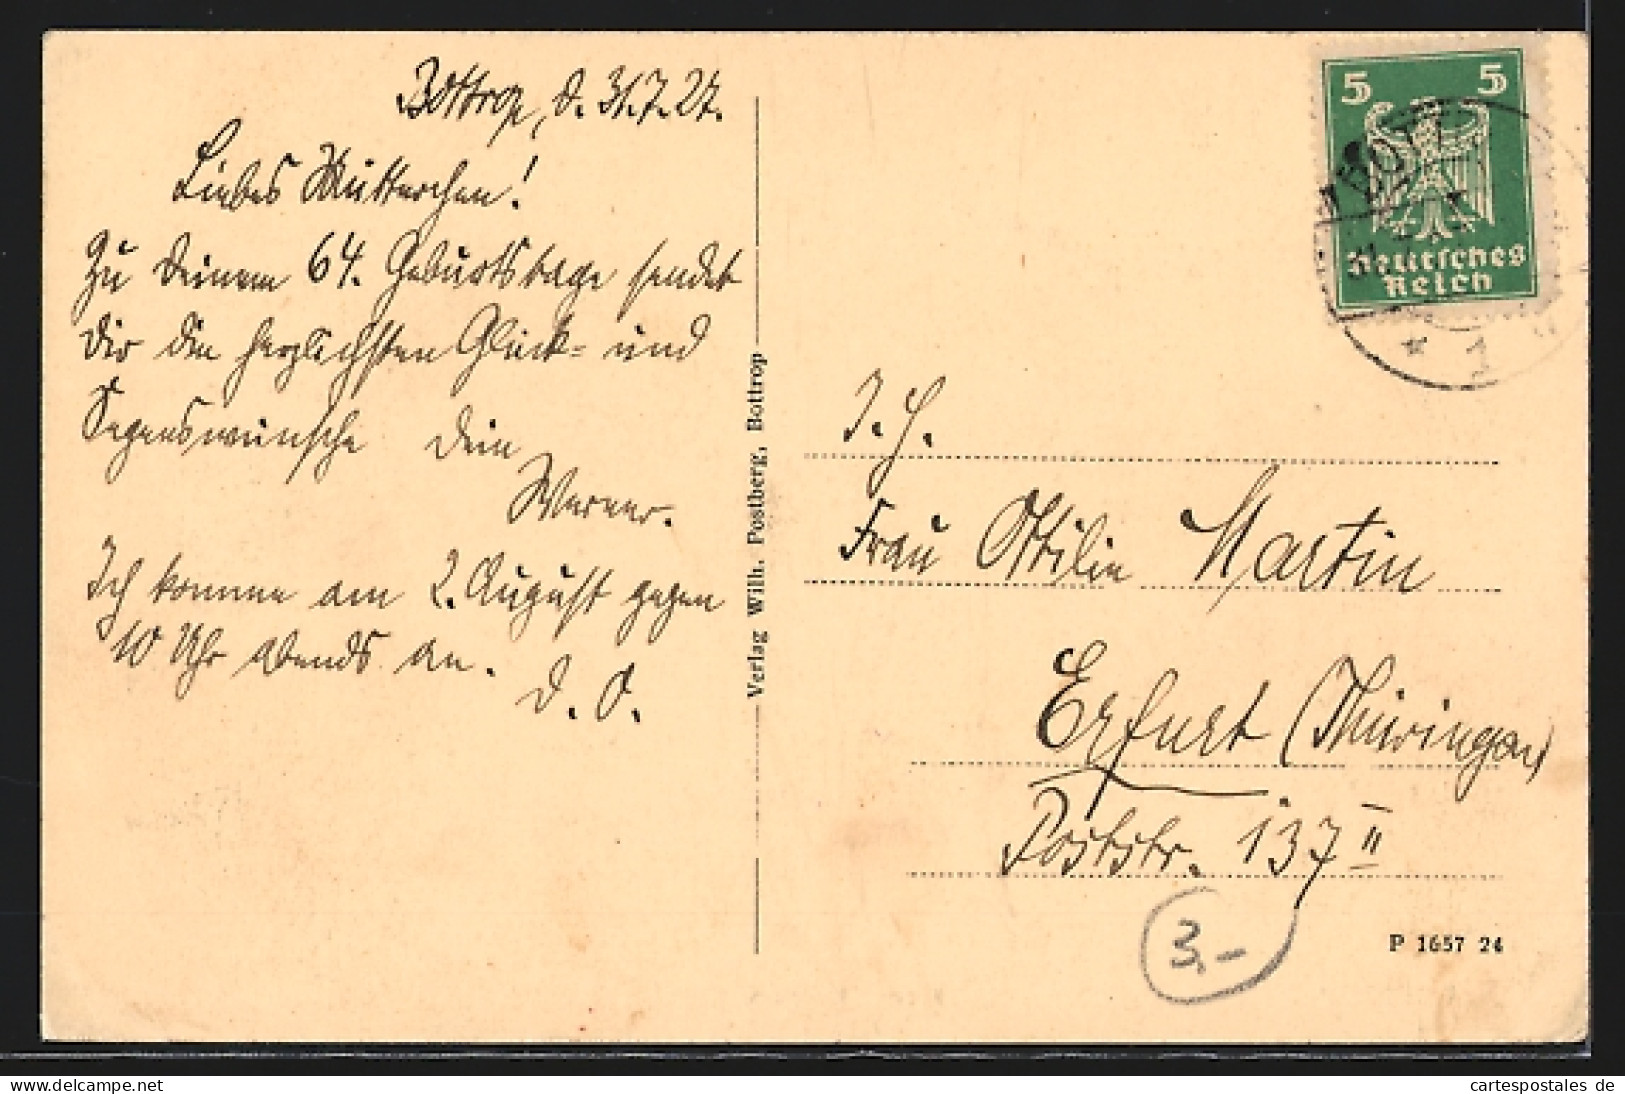 Bottrop, d. 31.7.27.
Liebes Mütterchen!
Zu Deinem 64. Geburtstage sendet
Dir die herzlichsten Glück- und
Segenswünsche Dein
Werner.
Ich komme am 2. August gegen
10 Uhr abends an.
D. O.
Verlag Wilh. Postberg, Bottrop
5 5
Deutsches
Reich
BOT
* 1
I. H.
Frau Ottilie Martin
Erfurt (Thüringen)
Poststr. 137 II
3,-
P 1657 24
cartespostales.de
www.delcampe.net